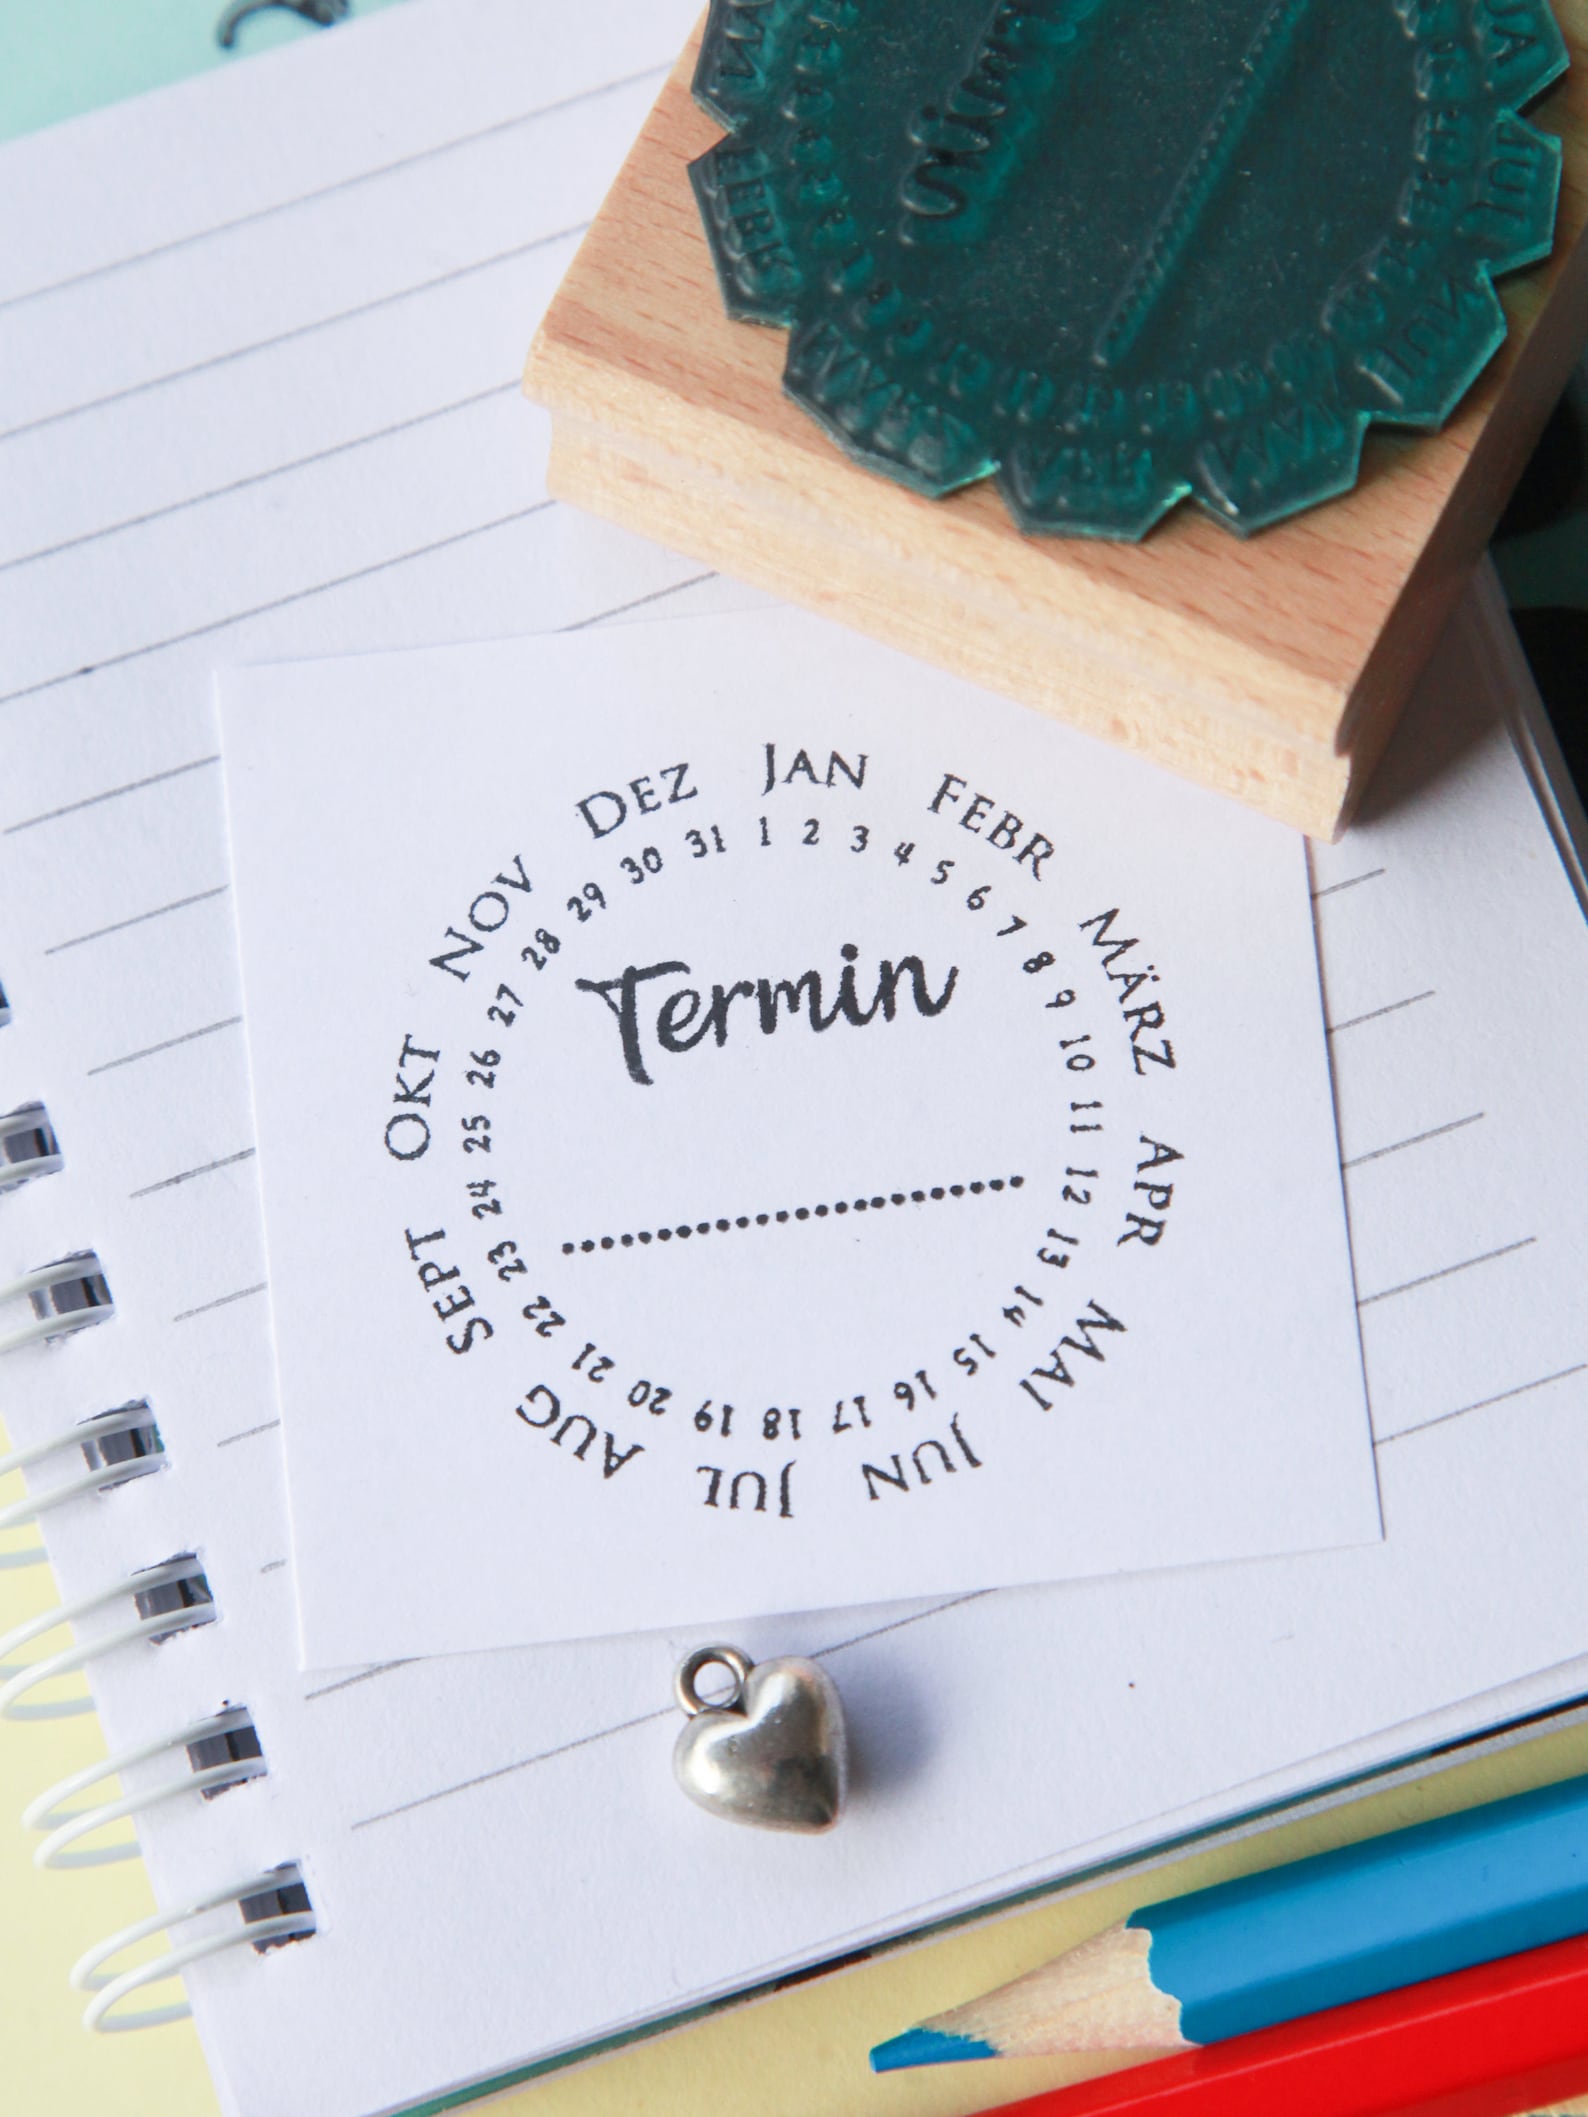 JAN FEBR MÄRZ APR MAI JUN JUL AUG SEPT OKT NOV DEZ
1 2 3 4 5 6 7 8 9 10 11 12 13 14 15 16 17 18 19 20 21 22 23 24 25 26 27 28 29 30 31
Termin